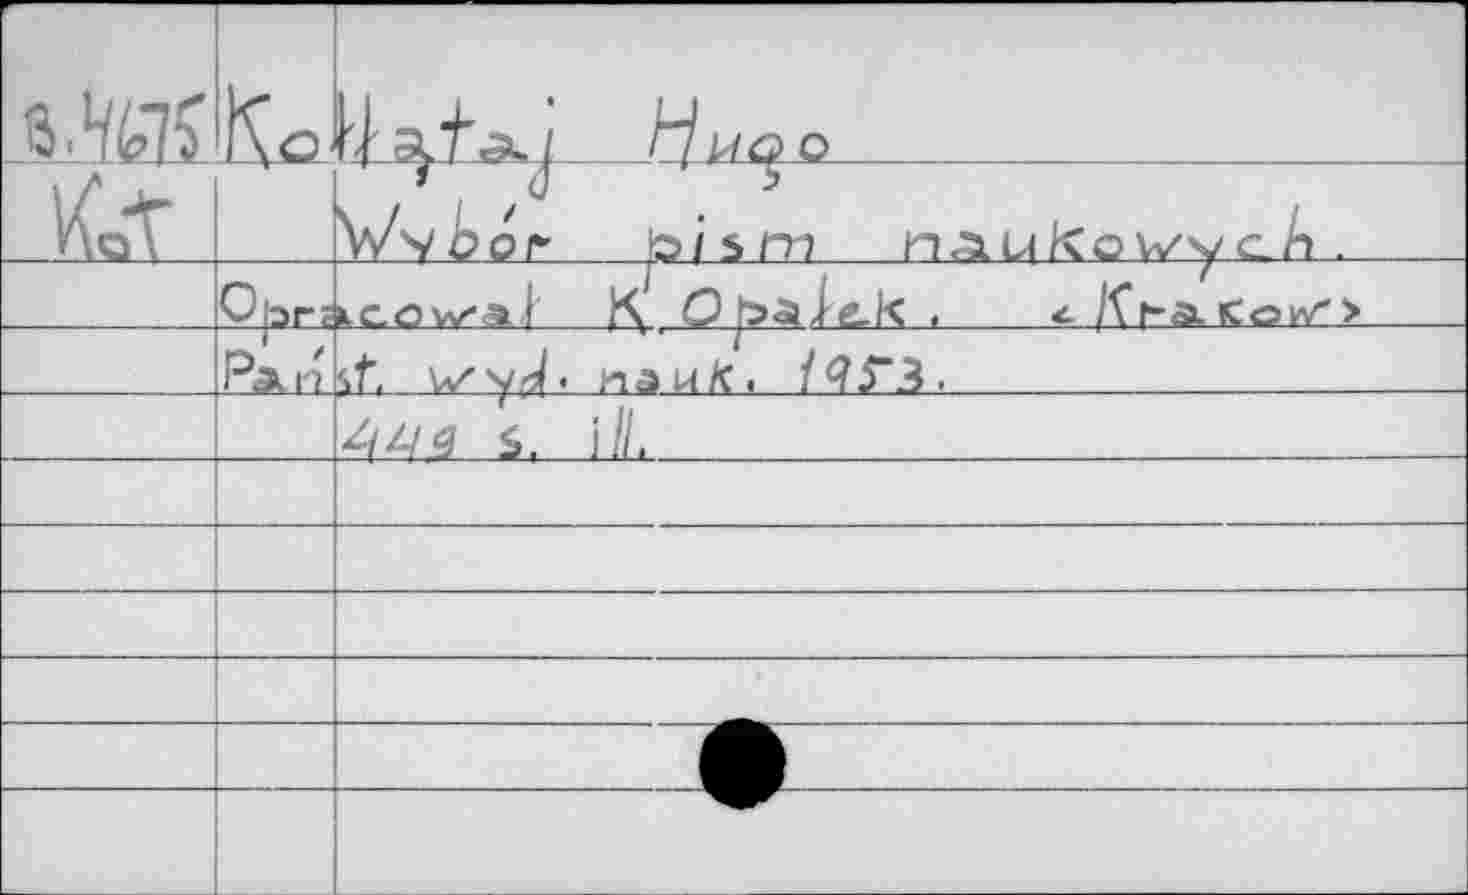 B.4675 Kołłątaj Hugo
Koł Wybór pism naukowych.
Opracował K. Opałek. <Krakow>
Państ. wyd. nauk. 1953.
449 s. ill.